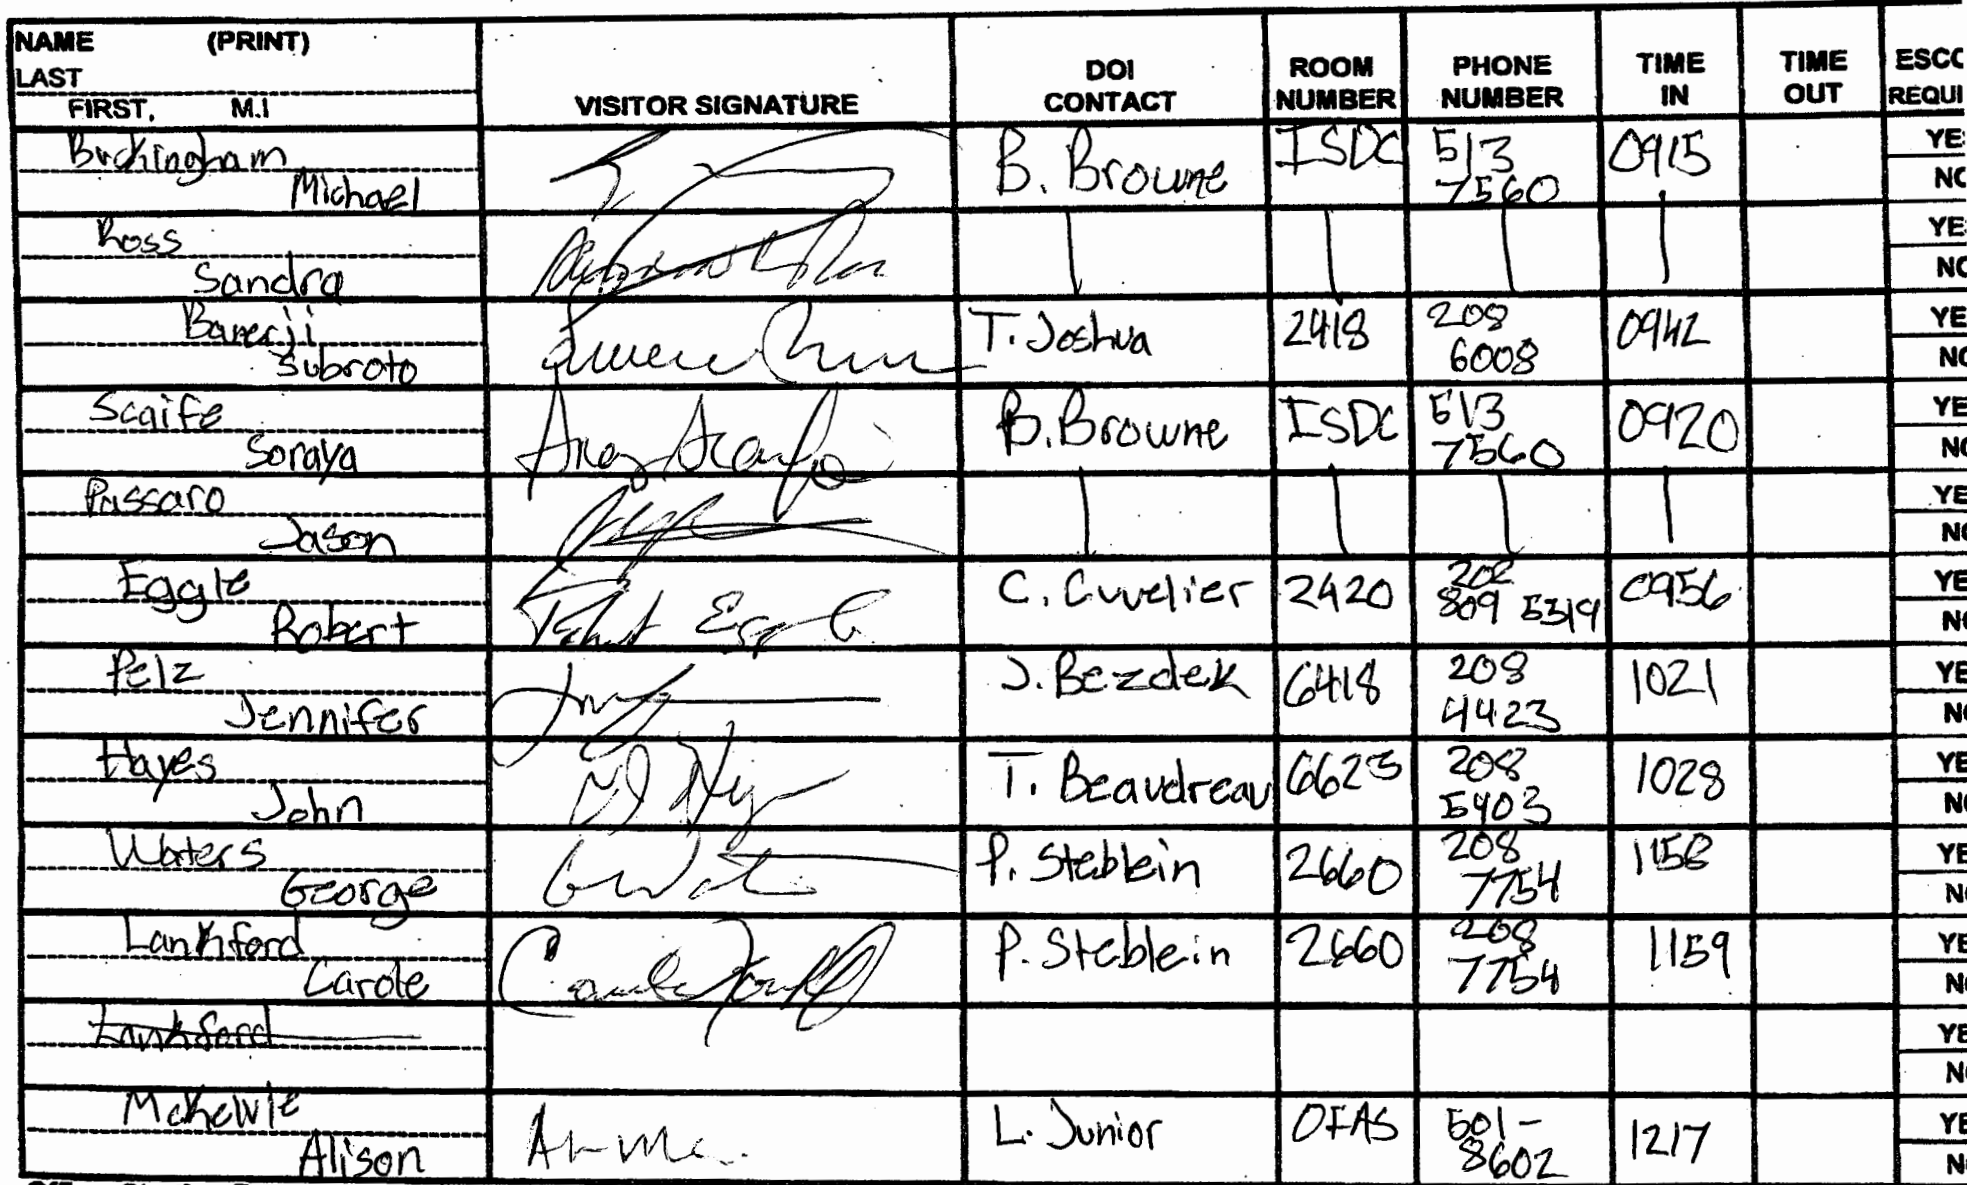 NAME (PRINT)
LAST
FIRST, M.I
VISITOR SIGNATURE
DOI CONTACT
ROOM NUMBER
PHONE NUMBER
TIME IN
TIME OUT
ESCC
REQUI
Buckingham
Michael
B. Browne
ISDC
513
7560
0915
YE
NO
Ross
Sandra
YE
NO
Banerji
Subroto
T. Joshua
2418
208
6008
0942
YE
NO
Scaife
Soraya
B. Browne
ISDC
513
7560
0920
YE
NO
Passaro
Jason
YE
NO
Eggle
Robert
C. Cuvelier
2420
202
809 5319
0956
YE
NO
Pelz
Jennifer
J. Bezdek
6418
208
4423
1021
YE
NO
Hayes
John
T. Beaudreau
6623
208
5403
1028
YE
NO
Waters
George
G Wat
P. Steblein
2660
208
7754
1158
YE
NO
Lankford
Carole
P. Steblein
2660
208
7754
1159
YE
NO
Lankford
YE
NO
Alison
L. Junior
OFAS
501-
8602
1217
YE
NO